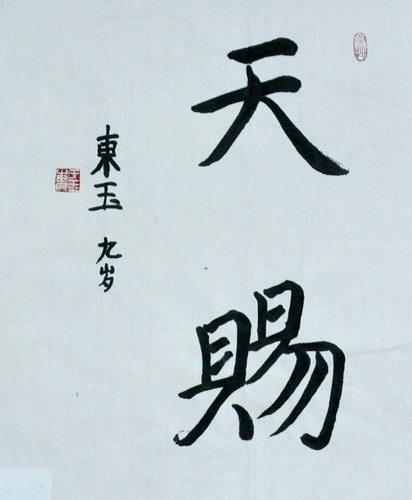 天賜
東玉 九岁